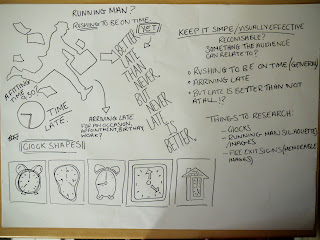 RUNNING MAN?
RUSHING TO BE ON TIME.
(YET)
BETTER
LATE
THAN
NEVER
BUT
NEVER
LATE
IS
BETTER
TIME
9:30!
TIME
LATE.
ARRIVING LATE
FOR AN OCCASION,
APPOINTMENT, BIRTHDAY
WORK?
CLOCK SHAPES
KEEP IT SIMPLE/VISUALLY EFFECTIVE
RECONISABLE?
SOMETHING THE AUDIENCE
CAN RELATE TO?
RUSHING TO BE ON TIME/(GENERAL)
ARRIVING LATE
BUT LATE IS BETTER THAN NOT
AT ALL!?
THINGS TO RESEARCH:
- CLOCKS
- RUNNING MAN (SILHOUETTE)
/IMAGES
- FIRE EXIT SIGNS
IMAGES)